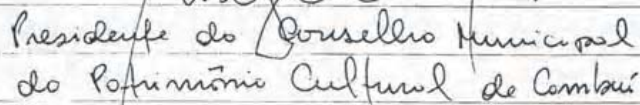 Presidente do Conselho Municipal
do Patrimônio Cultural de Cambuí